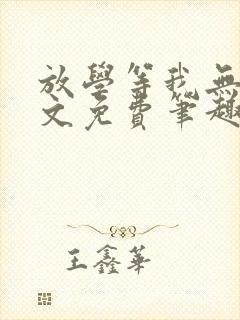 放學等我無
文免費筆趣
王鑫華